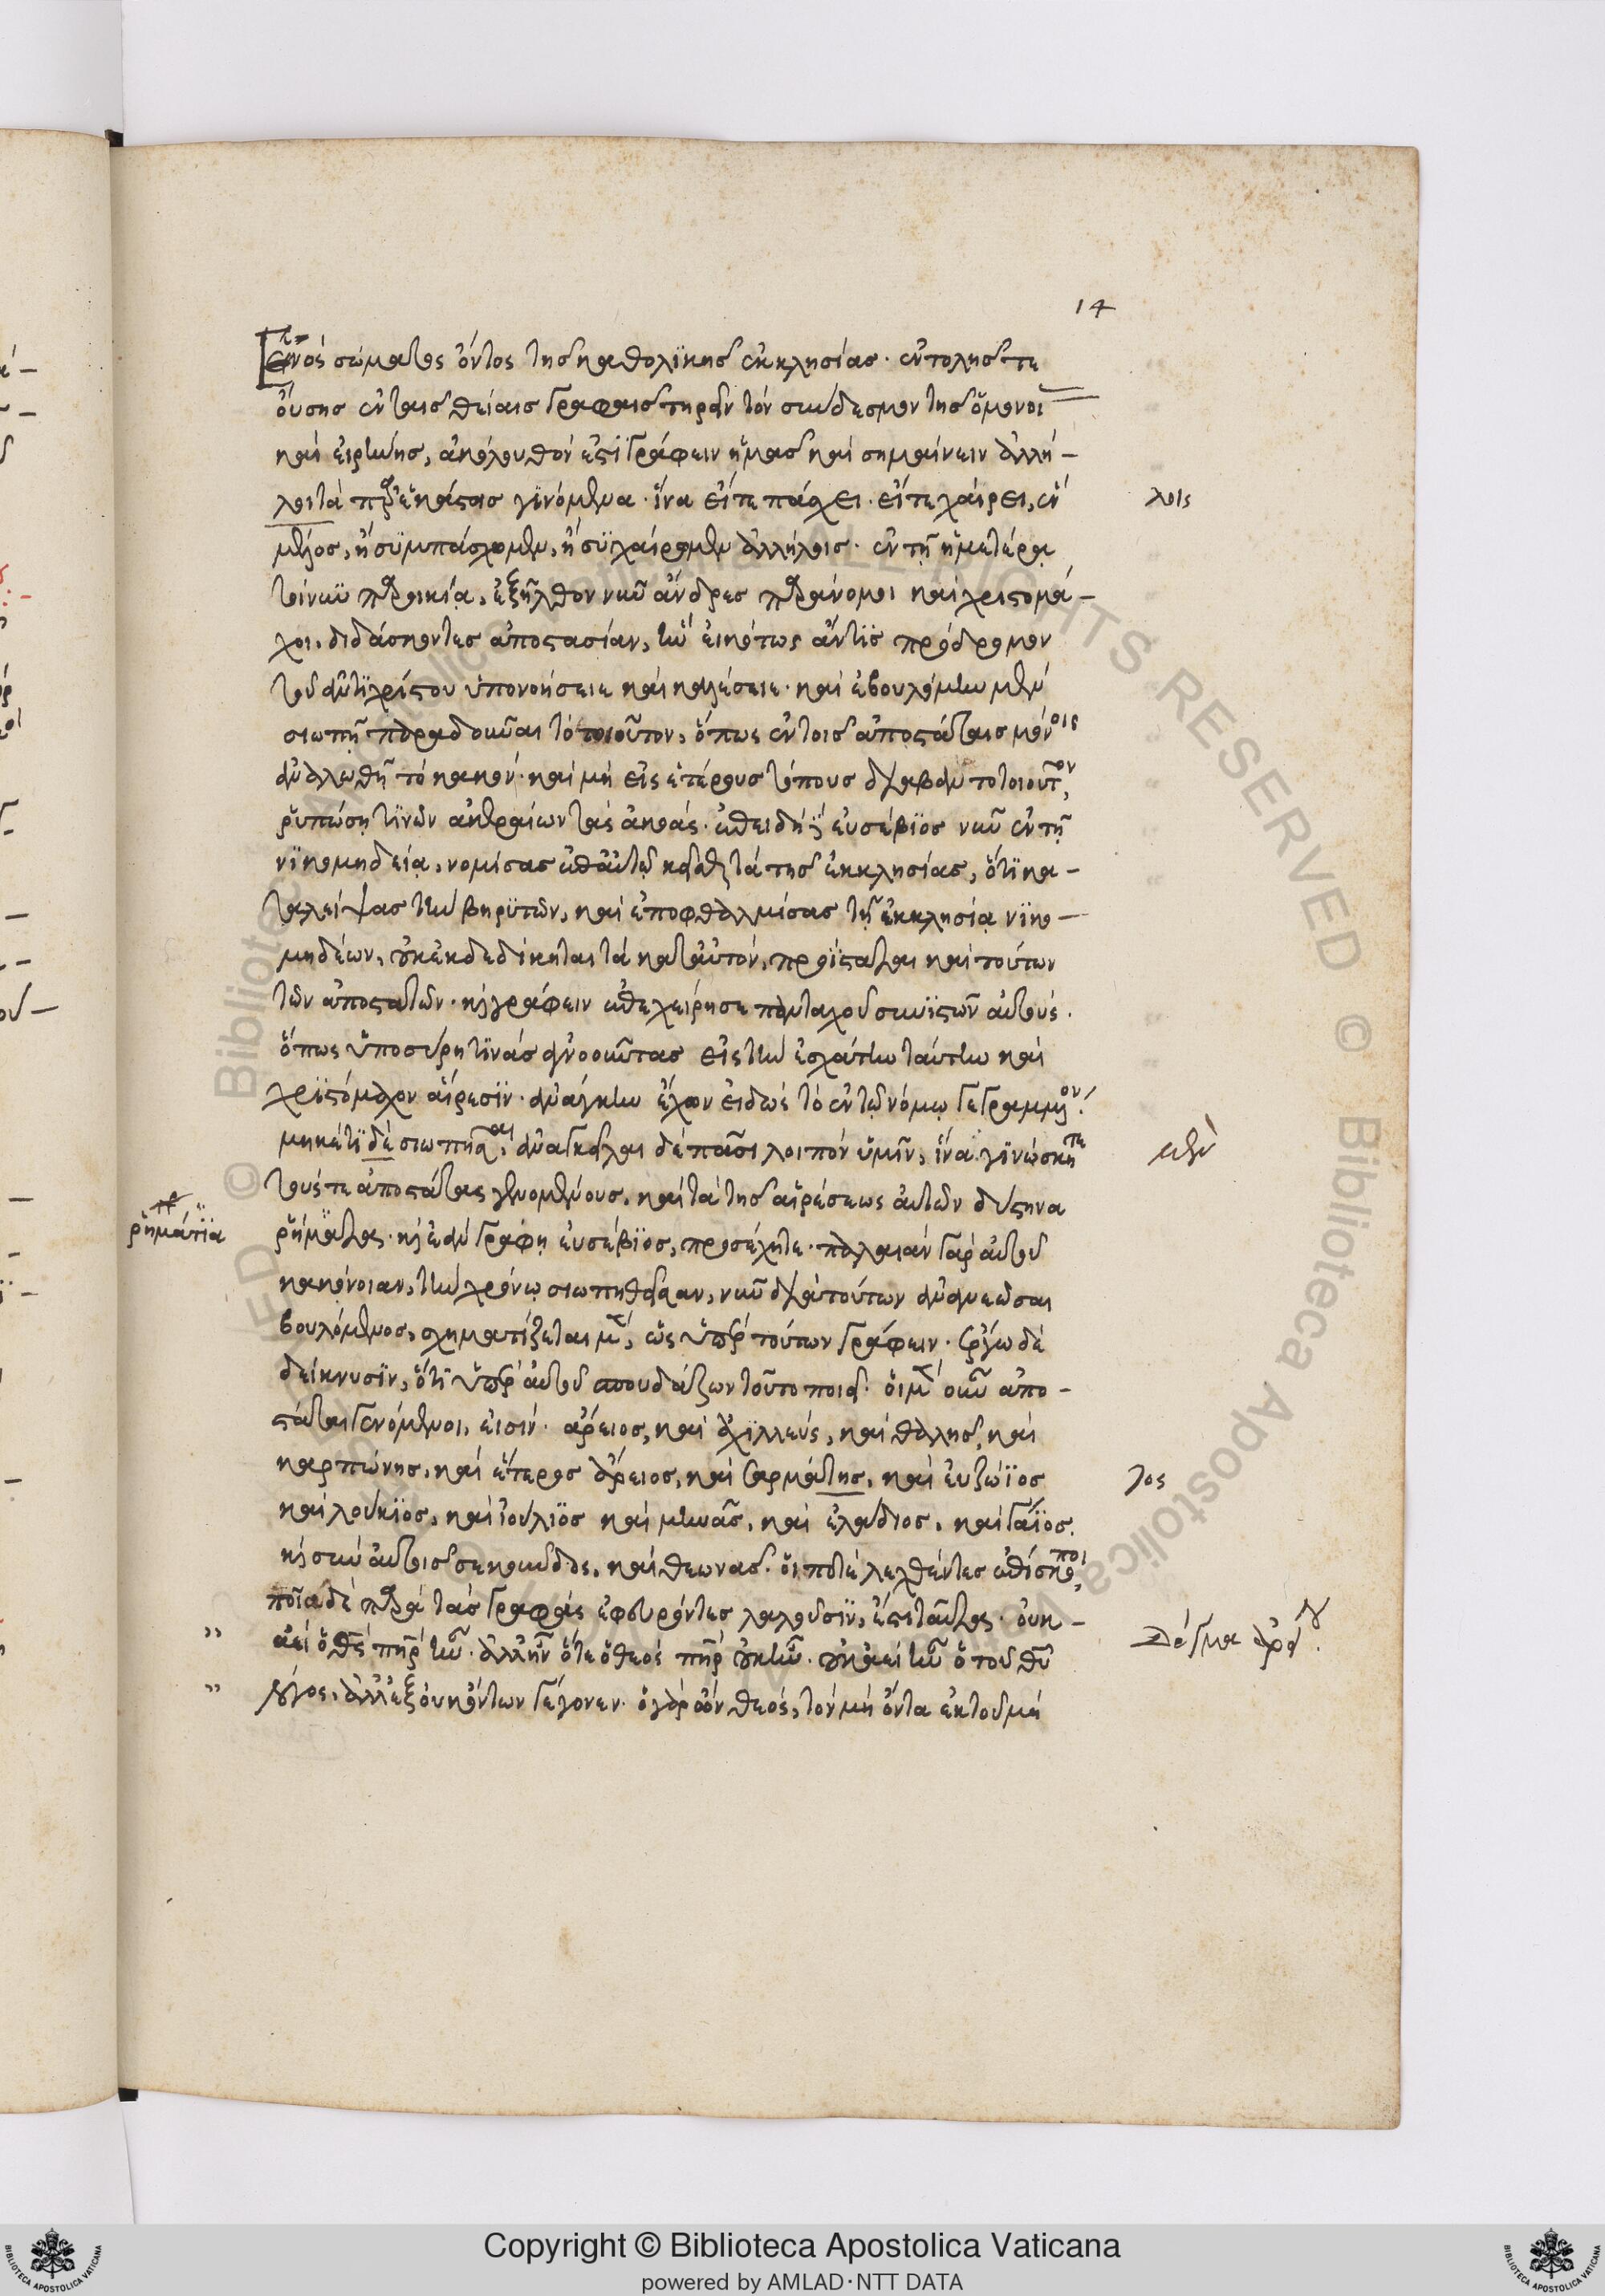 14
Ἑνός σώματος ὄντος τῆς καθολϊκῆς ἐκκλησίας· ἐντολῆς τε
οὔσης ἐν ταῖς θείαις γραφαῖς τηρεῖν τόν σύνδεσμον τῆς ὁμονοι
καί εἰρήνης, ἀκόλουθόν ἐστὶ γράφειν ἡμᾶς καί σημαίνειν ἀλλή –
λοι τά παρ' ἑκάστοις γϊνόμενα· ἵνα εἴτε πάσχει· εἴτε χαίρει, ἓν
λοις
μέλος, ἢ συμπάσχομεν, ἢ συγχαίρομεν ἀλλήλοις· ἐν τῇ ἡμετέρᾳ
τοίνυν παροικίᾳ, ἐξῆλθον νῦν ἄνδρες παράνομοι καί χριστομά –
χοι, διδάσκοντες ἀποστασίαν, ἣν εἰκότως ἄν τϊς πρόδρομον
τοῦ ἀντϊχρίστου ὑπονοήσειε καί καλέσειε· καί ἐβουλόμην μέν
σιωπῇ παραδοῦναι τό τοιοῦτον, ὅπως ἐν τοῖς ἀποστάταις μόνοις
ἀναλωθῇ τό κακόν· καί μή εἰς ἑτέρους τόπους διαβάν το τοιοῦτον,
ῥυπώσῃ τϊνῶν ἀκεραίων τάς ἀκοάς· ἐπειδή δέ εὐσέβϊος νῦν ἐν τῇ
νϊκομηδείᾳ, νομίσας ἐπ' αὐτῷ κεῖσθαι τά τῆς ἐκκλησίας, ὅτϊ κα –
ταλείψας τήν βηρϋτῶν, καί ἐποφθαλμίσας τῇ ἐκκλησίᾳ νϊκο –
μηδέων, οὐκ ἐκδεδίκηται τά κατ' αὐτόν, προΐσταται καί τούτων
τῶν ἀποστατῶν· καί γράφειν ἐπεχείρησε πανταχοῦ συνϊστῶν αὐτούς·
ὅπως ὑποσύρῃ τϊνάς ἀγνοοῦντας εἰς τήν ἐσχάτην ταύτην καί
χρϊστόμαχον αἵρεσϊν· ἀνάγκην ἔσχον εἰδώς τό ἐν τῷ νόμῳ γεγραμμένον·
μηκέτϊ δέ σιωπῆσαι, ἀναγγεῖλαι δέ πᾶσι λοιπόν ὑμῖν, ἵνα γϊνώσκητε
μέν
τούς τε ἀποστάτας γενομένους, καί τά τῆς αἱρέσεως αὐτῶν δύστηνα
ῥήματα· καί ἐάν γράφῃ εὐσέβϊος, προσέχητε· παλαιάν γάρ αὐτοῦ
ῥημάτϊα
κακόνοιαν, τήν χρόνῳ σιωπηθεῖσαν, νῦν διά τούτων ἀνανεῶσαι
βουλόμενος, σχηματίζεται μέν, ὡς ὑπέρ τούτων γράφειν· ἔργῳ δέ
δείκνυσϊν, ὅτϊ ὑπέρ αὐτοῦ σπουδάζων τοῦτο ποιεῖ· οἱ μέν οὖν ἀπο –
στάται γενόμενοι, εἰσίν· ἄρειος, καί ἀχϊλλεύς, καί θαλῆς, καί
καρπώνης, καί ἕτερος ἄρειος, καί σαρμάτης, καί εὐζώϊος
τος
καί λούκϊος, καί ἰούλιος καί μηνᾶς, καί ἐλάδιος, καί γάϊος.
καί σύν αὐτοῖς σεκοῦνδος, καί θεωνᾶς· οἵ ποτέ λεχθέντες ἐπίσκοποι,
ποῖα δέ παρά τάς γραφάς ἐφευρόντες λαλοῦσϊν, ἐστί ταῦτα· οὐκ –
ἀεί ὁ θεός πατήρ ἦν· ἀλλ' ἦν ὅτε ὁ θεός πατήρ οὐκ ἦν· οὐκ ἀεί ἦν ὁ τοῦ θεοῦ
δόγμα ἀρείου.
λόγος, ἀλλ' ἐξ οὐκ ὄντων γέγονεν· ὁ γάρ ὤν θεός, τόν μή ὄντα ἐκ τοῦ μή